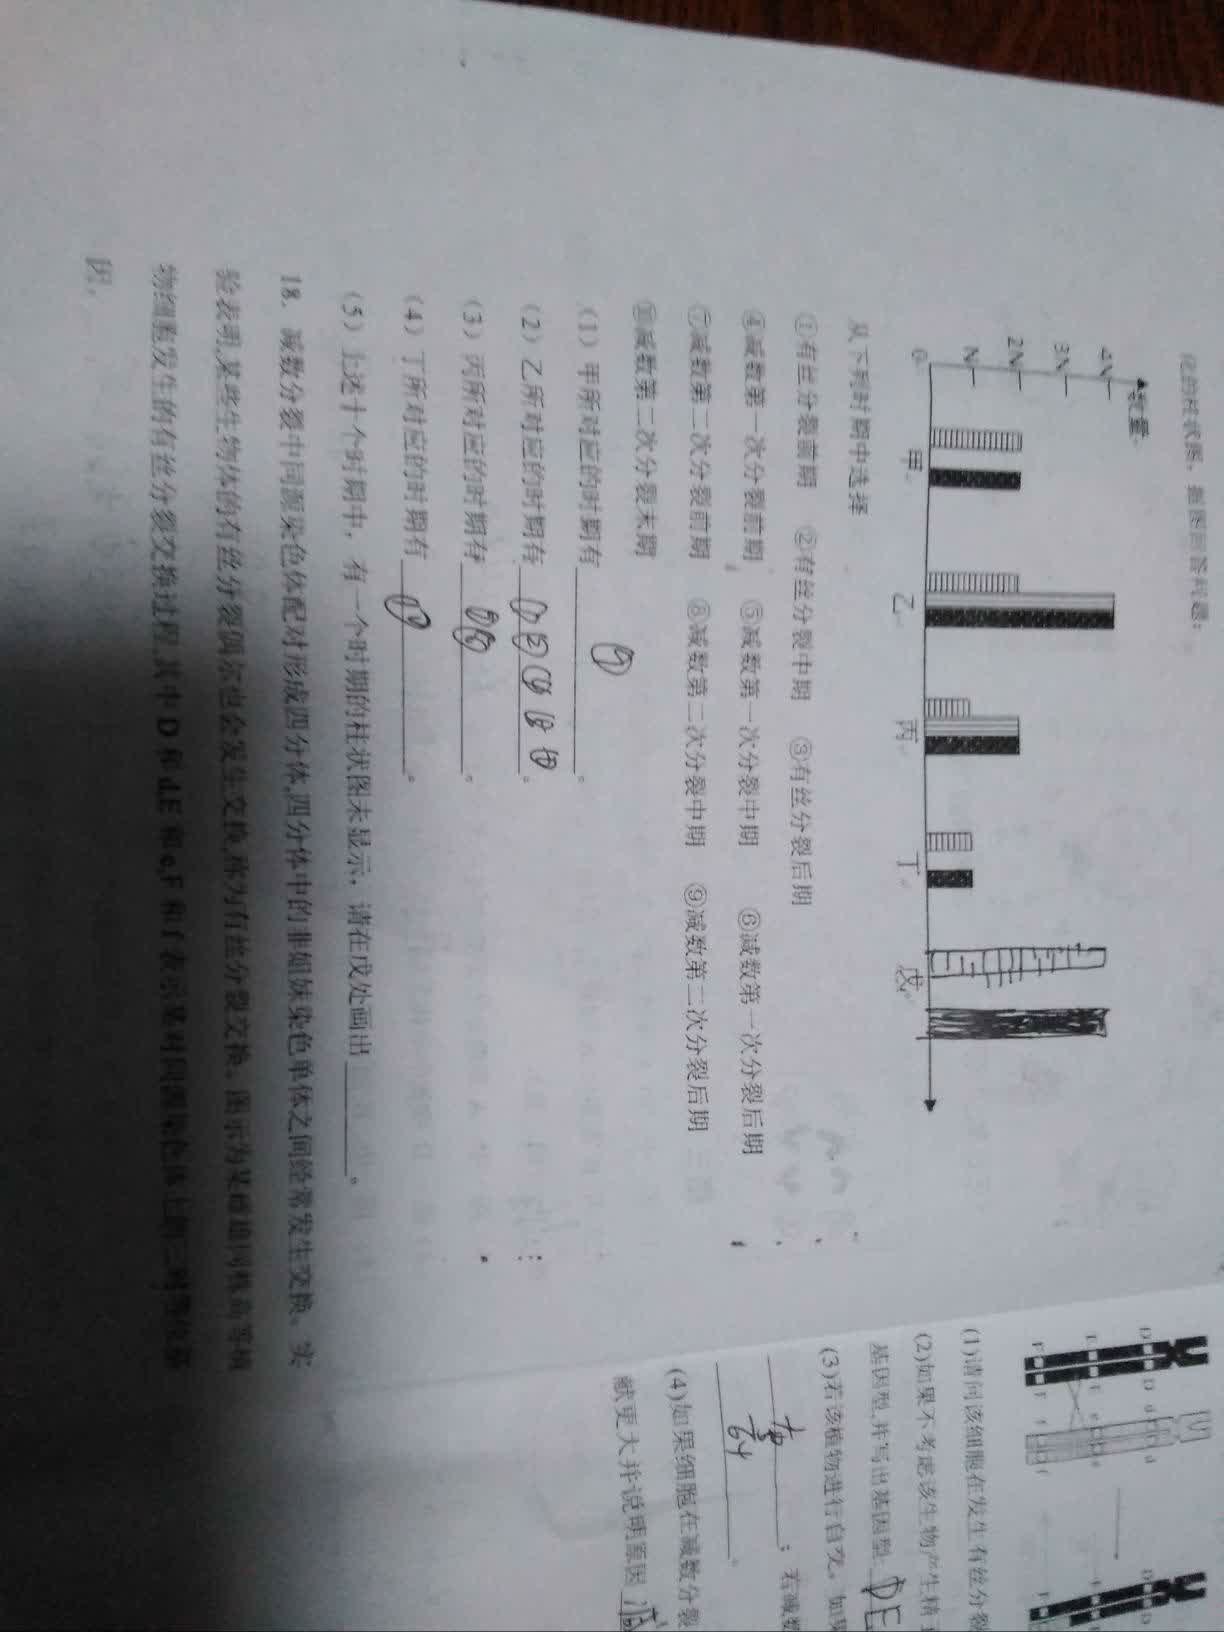 化的柱状图，据图回答问题：
数量
4N
3N
2N
N
0
甲 乙 丙 丁 戊
从下列时期中选择
①有丝分裂前期 ②有丝分裂中期 ③有丝分裂后期
④减数第一次分裂前期 ⑤减数第一次分裂中期 ⑥减数第一次分裂后期
⑦减数第二次分裂前期 ⑧减数第二次分裂中期 ⑨减数第二次分裂后期
⑩减数第二次分裂末期
(1）甲所对应的时期有 。
(2）乙所对应的时期有 。
(3）丙所对应的时期有 。
(4）丁所对应的时期有 。
(5）上述十个时期中，有一个时期的柱状图未显示，请在戊处画出 。
18．减数分裂中同源染色体配对形成四分体,四分体中的非姐妹染色单体之间经常发生交换。实
验表明,某些生物体的有丝分裂偶尔也会发生交换,称为有丝分裂交换。图示为某雌雄同株高等植
物细胞发生的有丝分裂交换过程,其中D和d,E和e,F和f表示某对同源染色体上的三对等位基
因，
D D d d
E E e e
F F f f
(1)请问该细胞在发生有丝分裂
(2)如果不考虑该生物产生精
基因型,并写出基因型: DE
(3)若该植物进行自交，如果
；若减数
64
。
(4)如果细胞在减数分裂
献更大并说明原因